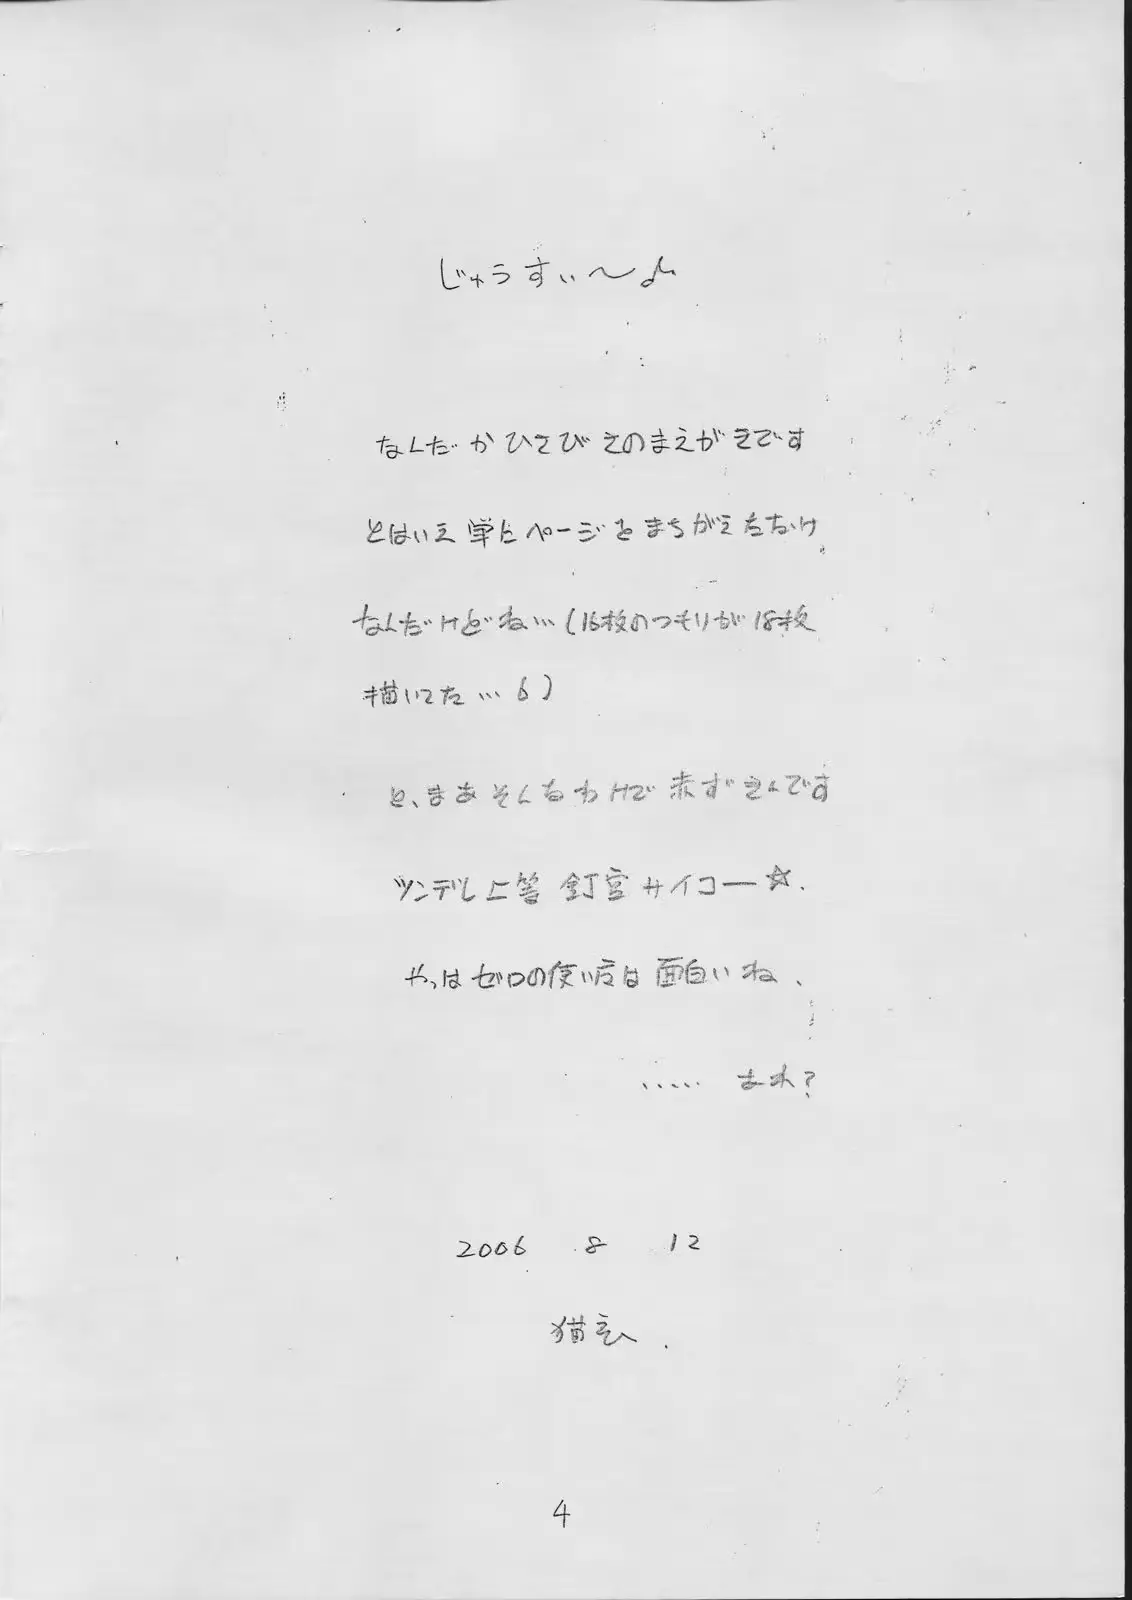 じゅうすぃ～♪
なんだかひさびさのまえがきです
とはいえ単にページをまちがえただけ
なんだけどね…(16枚のつもりが18枚
描いてた…6)
と、まあそんなわけで赤ずきんです
ツンデレ上等 釘宮サイコー☆.
やっぱゼロの使い魔は面白いね、
..... あれ?
2006 8 12
猫玄.
4